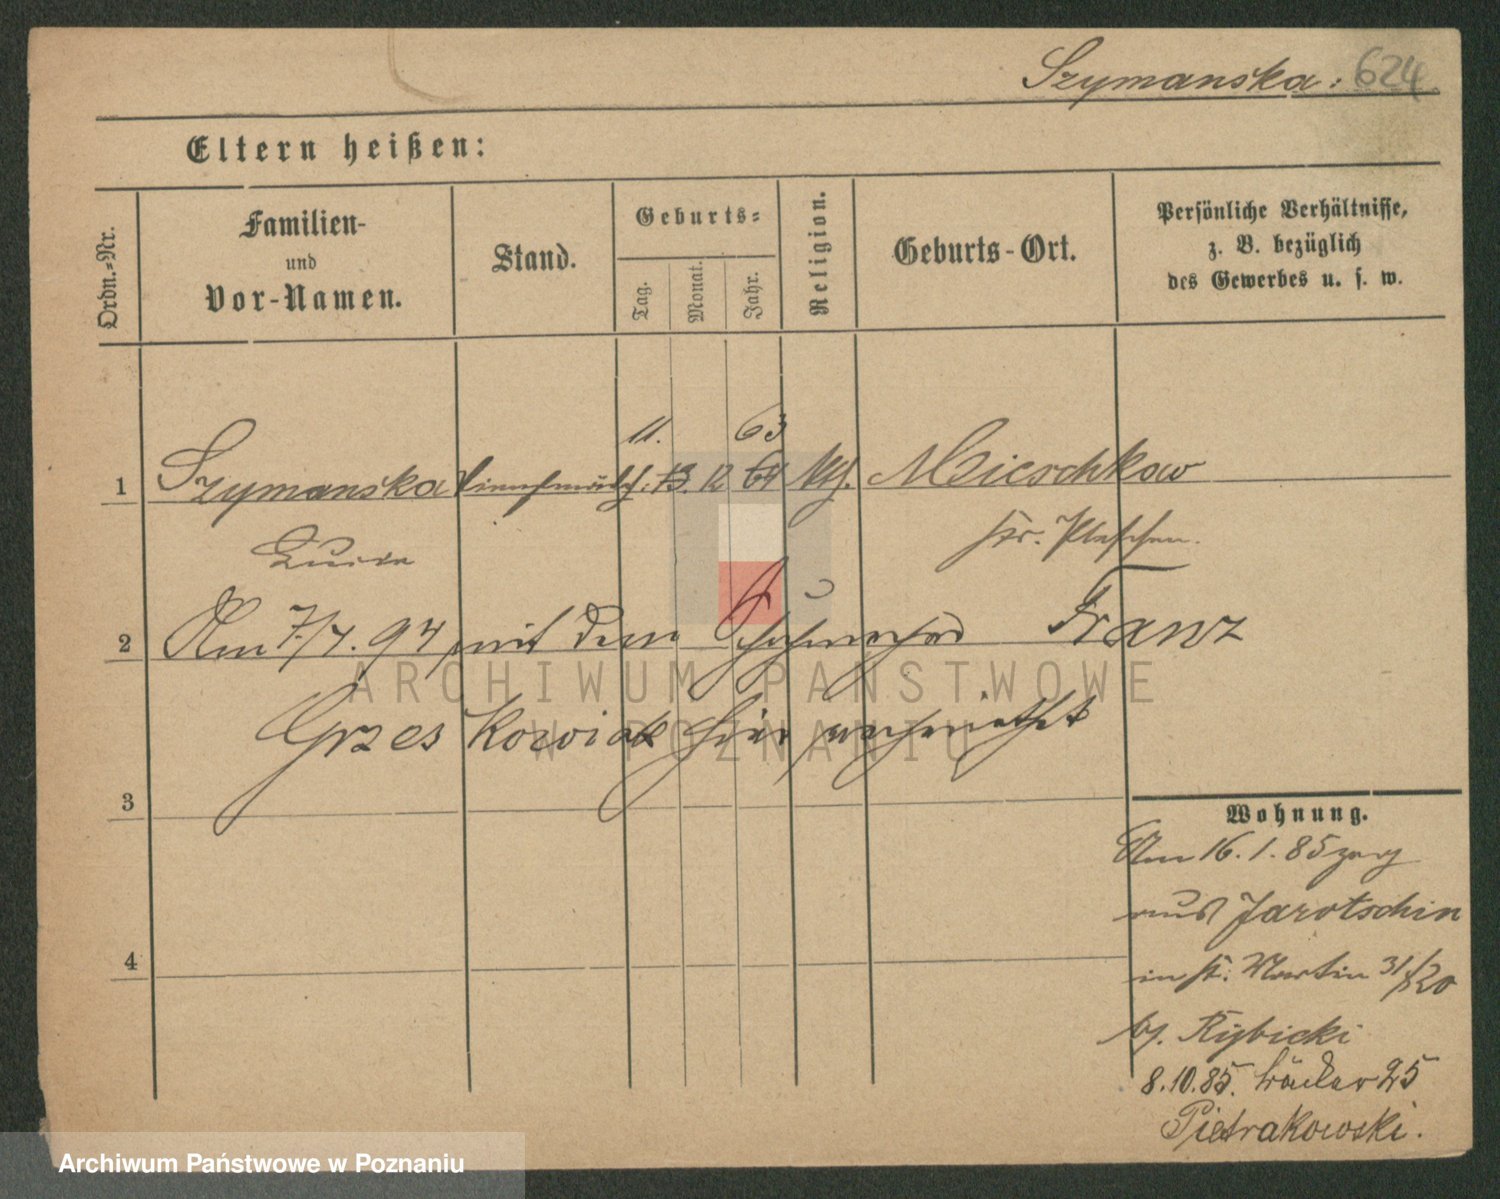 Szymanska: 624
Eltern heißen:
Ordn.=Nr.
Familien-
und
Vor-Namen.
Stand.
Geburts=
Tag.
Monat.
Jahr.
Religion.
Geburts-Ort.
Persönliche Verhältnisse,
z. B. bezüglich
des Gewerbes u. s. w.
11. 63
1 Szymanska Dienstmädch. 13. 12 64 kth. Mieschkow
Kr. Pleschen.
2 Am 7./4. 94 mit dem Franz
Grzeskowiak hier verheirathet
ARCHIWUM PAŃSTWOWE
W POZNANIU
3
Wohnung.
Am 16. 1. 85 zug
aus Jarotschin
4
in St. Martin 31/20
bj. Rybicki
8.10.85. 25
Pietrakowski.
Archiwum Państwowe w Poznaniu